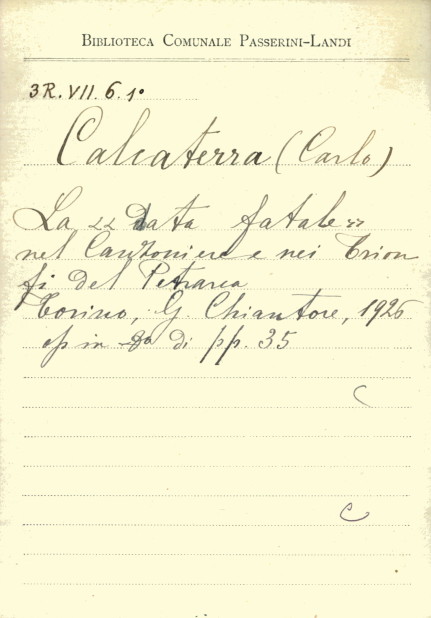 BIBLIOTECA COMUNALE PASSERINI-LANDI
3R. VII. 6. 1º
Calcaterra (Carlo)
La "Data fatale"
nel Canzoniere e nei Trion
fi del Petrarca
Torino, G. Chiantore, 1926
op in 8º di pp. 35
C
C